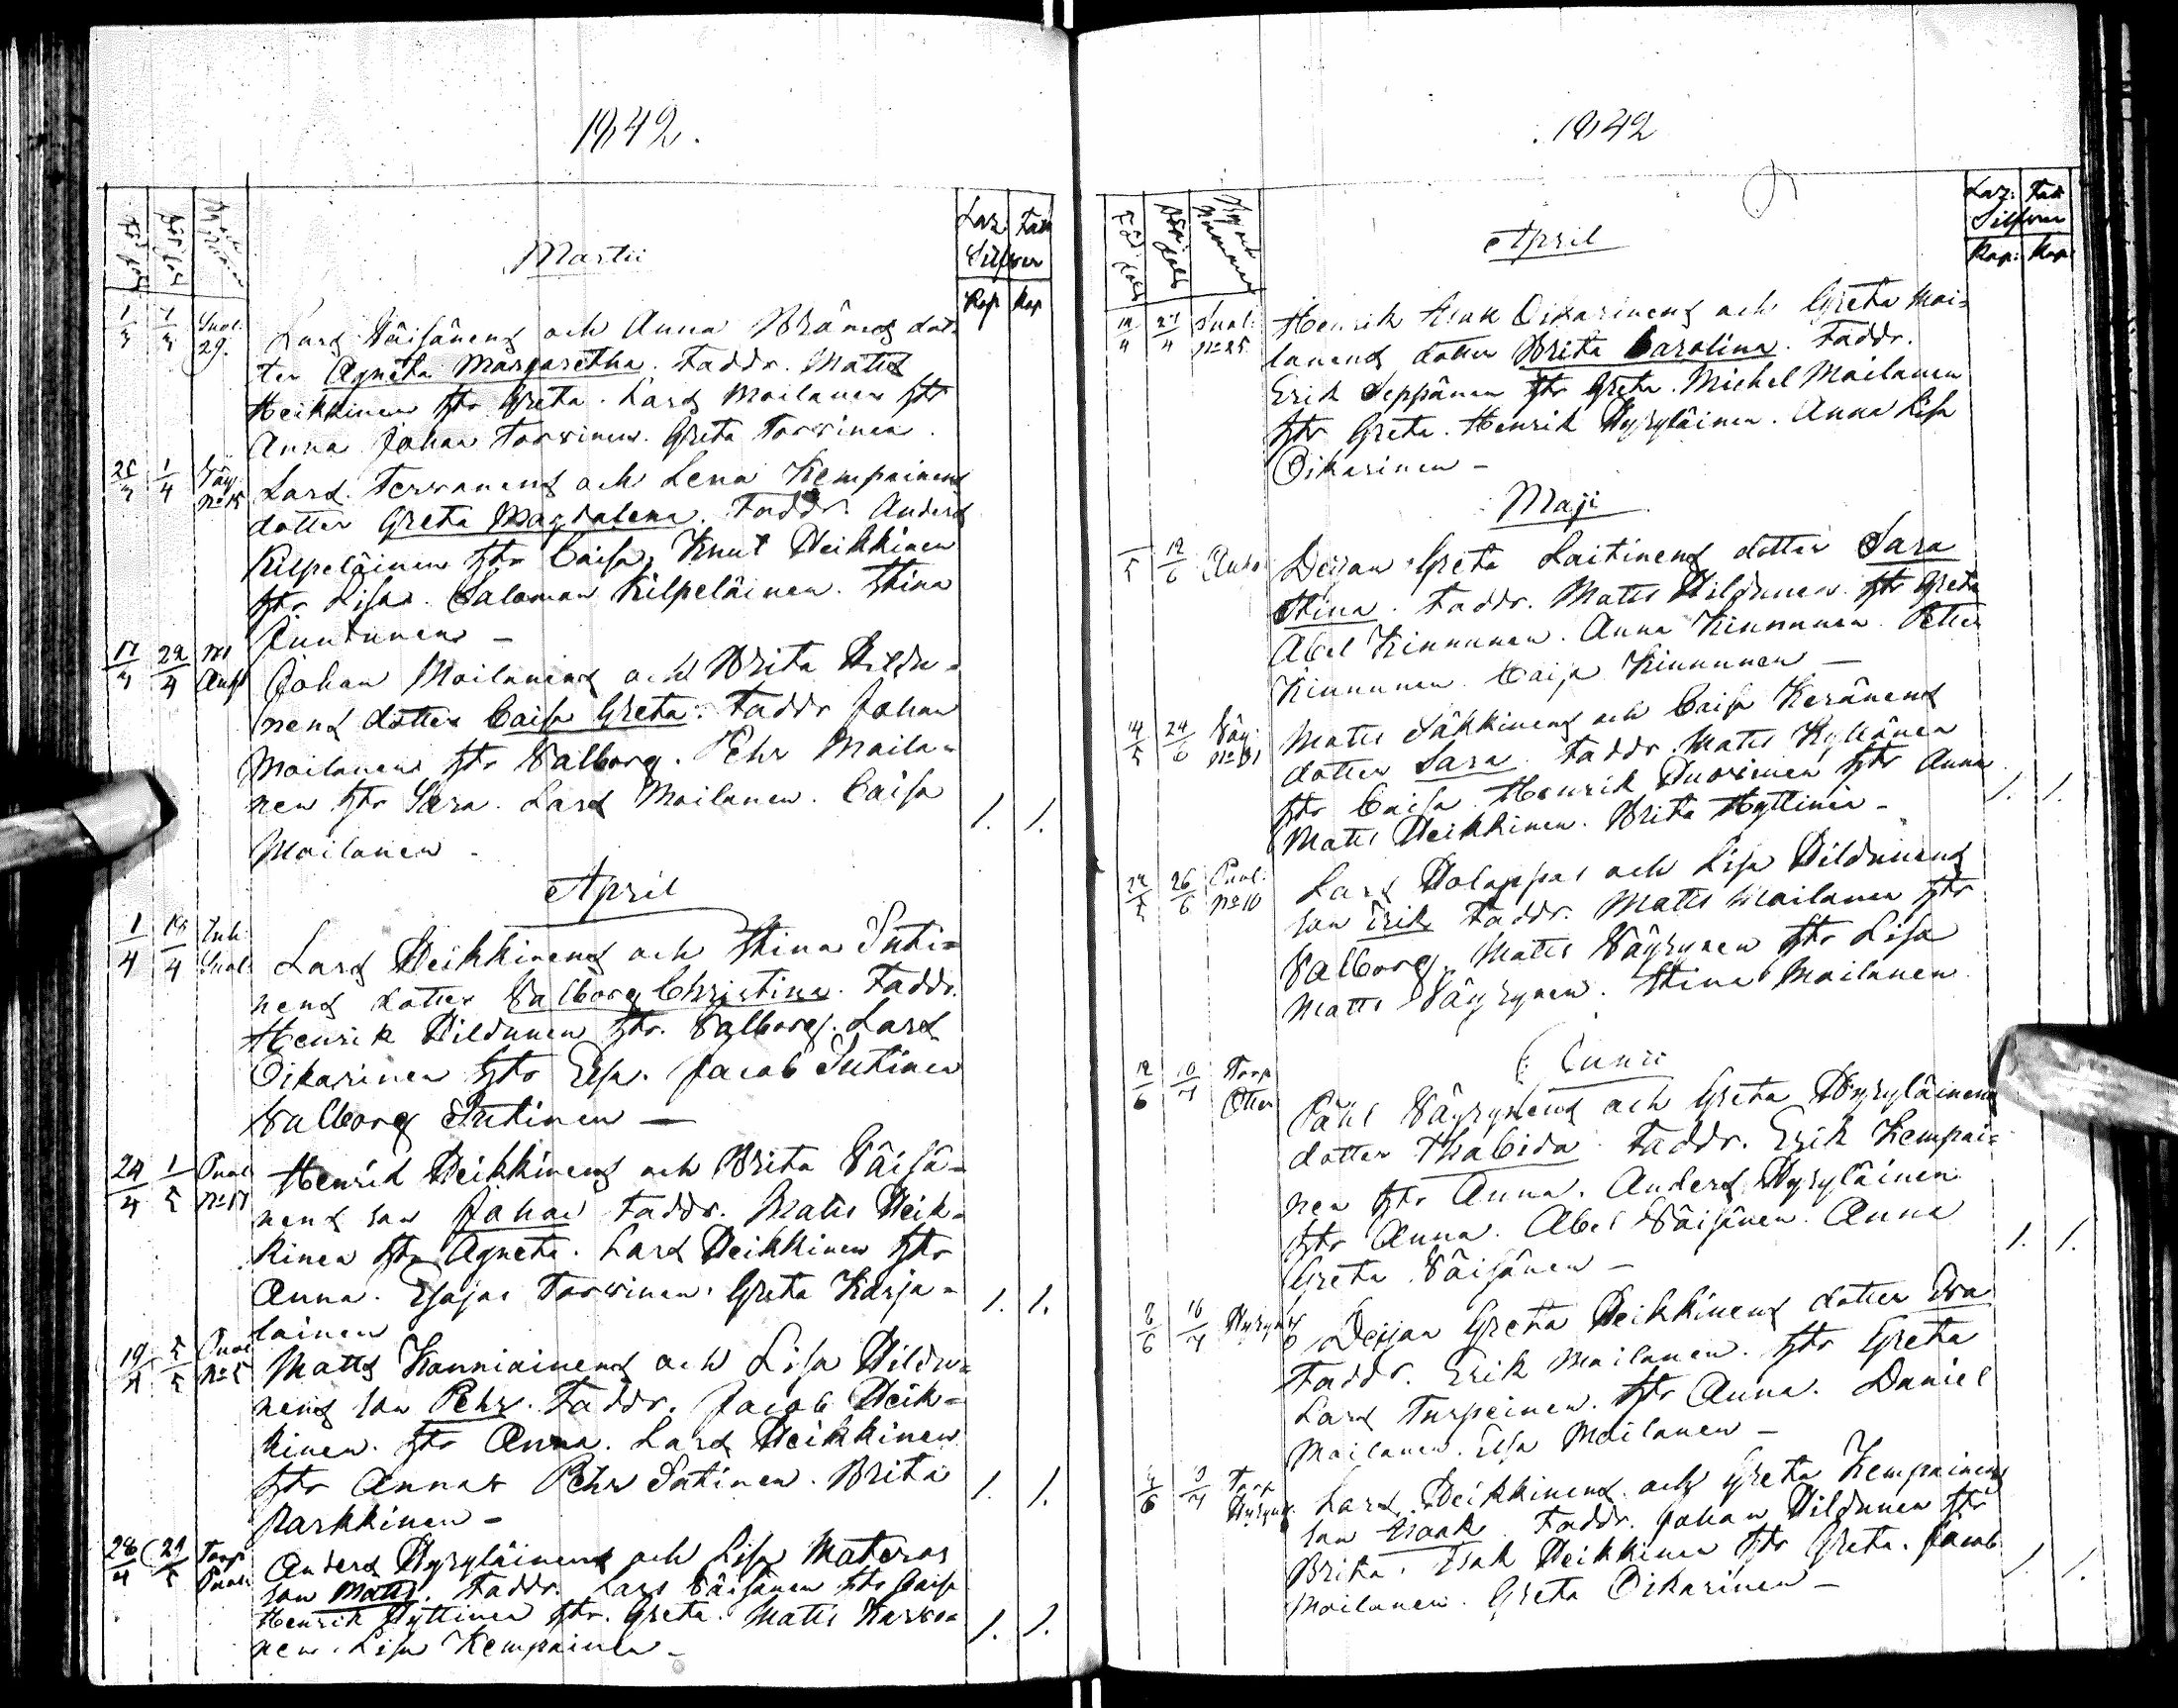 1842.
Laz: Fatt
Silfver
Kop Kop
Martii
1/3 Suol. 29. Lars Väisänens och Anna Kränes dot-
ter Agneta Margaretha. Faddr. Matts
Heikkinen htr Greta. Lars Moilanen htr
Anna Johan Torvinen. Greta Torvinen.
1/4 Väy. No 15 Lars Tervonens och Lena Kempainens
dotter Greta Magdalena. Faddr. Anders
Kilpeläinen htr Caisa, Knut Heikkinen
htr Lisa. Saloman Kilpeläinen. Stina
Juntunen –
22/4 Johan Moilanens och Brita Hildu-
nens dotter Caisa Greta. Faddr Johan
Moilanen htr Valborg. Pehr Moila-
nen htr Sara. Lars Moilanen. Caisa 1. 1.
Moilanen –
April
1/4 18/4 Inh. Suol. Lars Heikkinens och Stina Suti-
nens dotter Valborg Christina. Faddr.
Henrik Hildunen htr. Valborg. Lars
Oikarinen htr Elsa. Jacob Sutinen
Valborg Sutinen –
24/4 1/5 Puol No 17 Henrik Heikkinens och Brita Väisä-
nens son Johan Faddr. Matts Heik-
kinen htr Agneta. Lars Heikkinen htr
Anna. Esajas Torvinen. Greta Karja- 1. 1.
lainen
19/4 5/5 Puol No 5 Matts Kanniainens och Lisa Hildu-
nens son Pehr. Faddr. Jacob Heik-
kinen. htr Anna. Lars Heikkinen
htr Anna Pehr Sutinen. Brita 1. 1.
Parkkinen –
28/4 29/5 Torp Puol. Anders Hyryläinens och Lisa Materos
son Matts. Faddr. Lars Väisänen htr Caisa
Henrik Hyttinen htr. Greta. Matts Karvo- 1. 1.
nen. Lisa Kempainen –
1842
Laz: Fatt
Silfver
Kop: Kop:
April
Puol: No 25. Henrik Esak Oikarinens och Greta Moi-
lanens dotter Brita Carolina. Faddr.
Erik Seppänen htr Greta. Michel Moilanen
htr Greta. Henrik Hyryläinen. Anna Lisa
Oikarinen –
Maji
12/6 Deijan Greta Laitinens dotter Sara
Stina. Faddr. Matts Hildunen htr Greta
Abel Kinnunen. Anna Kinnunen. Petter
Kinnunen. Caisa Kinnunen –
14/5 24/6 Väy. Matts Säkkinens och Caisa Keränens
dotter Sara. Faddr. Matts Kyllönen
htr Caisa. Henrik Tuovinen htr Anna 1. 1.
Matts Heikkinen. Brita Hyttinen –
26/6 Puol: No 10 Lars Holappas och Lisa Hildunens
son Erik Faddr. Matts Moilanen htr
Valborg. Matts Väyrynen htr Lisa
Matts Väyrynen. Stina Moilanen
Junii
12/6 10/7 Torp Påhl Väyrynens och Greta Hyryläinens
dotter Thabida. Faddr. Erik Kempai-
nen htr Anna. Anders Hyryläinen
htr Anna. Abel Väisänen. Anna 1. 1.
Greta Väisänen –
10/7 Deijan Greta Heikkinens dotter Eva
Faddr. Erik Moilanen. htr Greta
Lars Turpeinen. htr Anna. Daniel
Moilanen. Elsa Moilanen –
Torp Lars Heikkinens och Greta Kempainens
son Esaak. Faddr. Johan Hildunen htr
Brita. Esak Heikkinen htr Greta. Jacob 1. 1.
Moilanen. Greta Oikarinen –